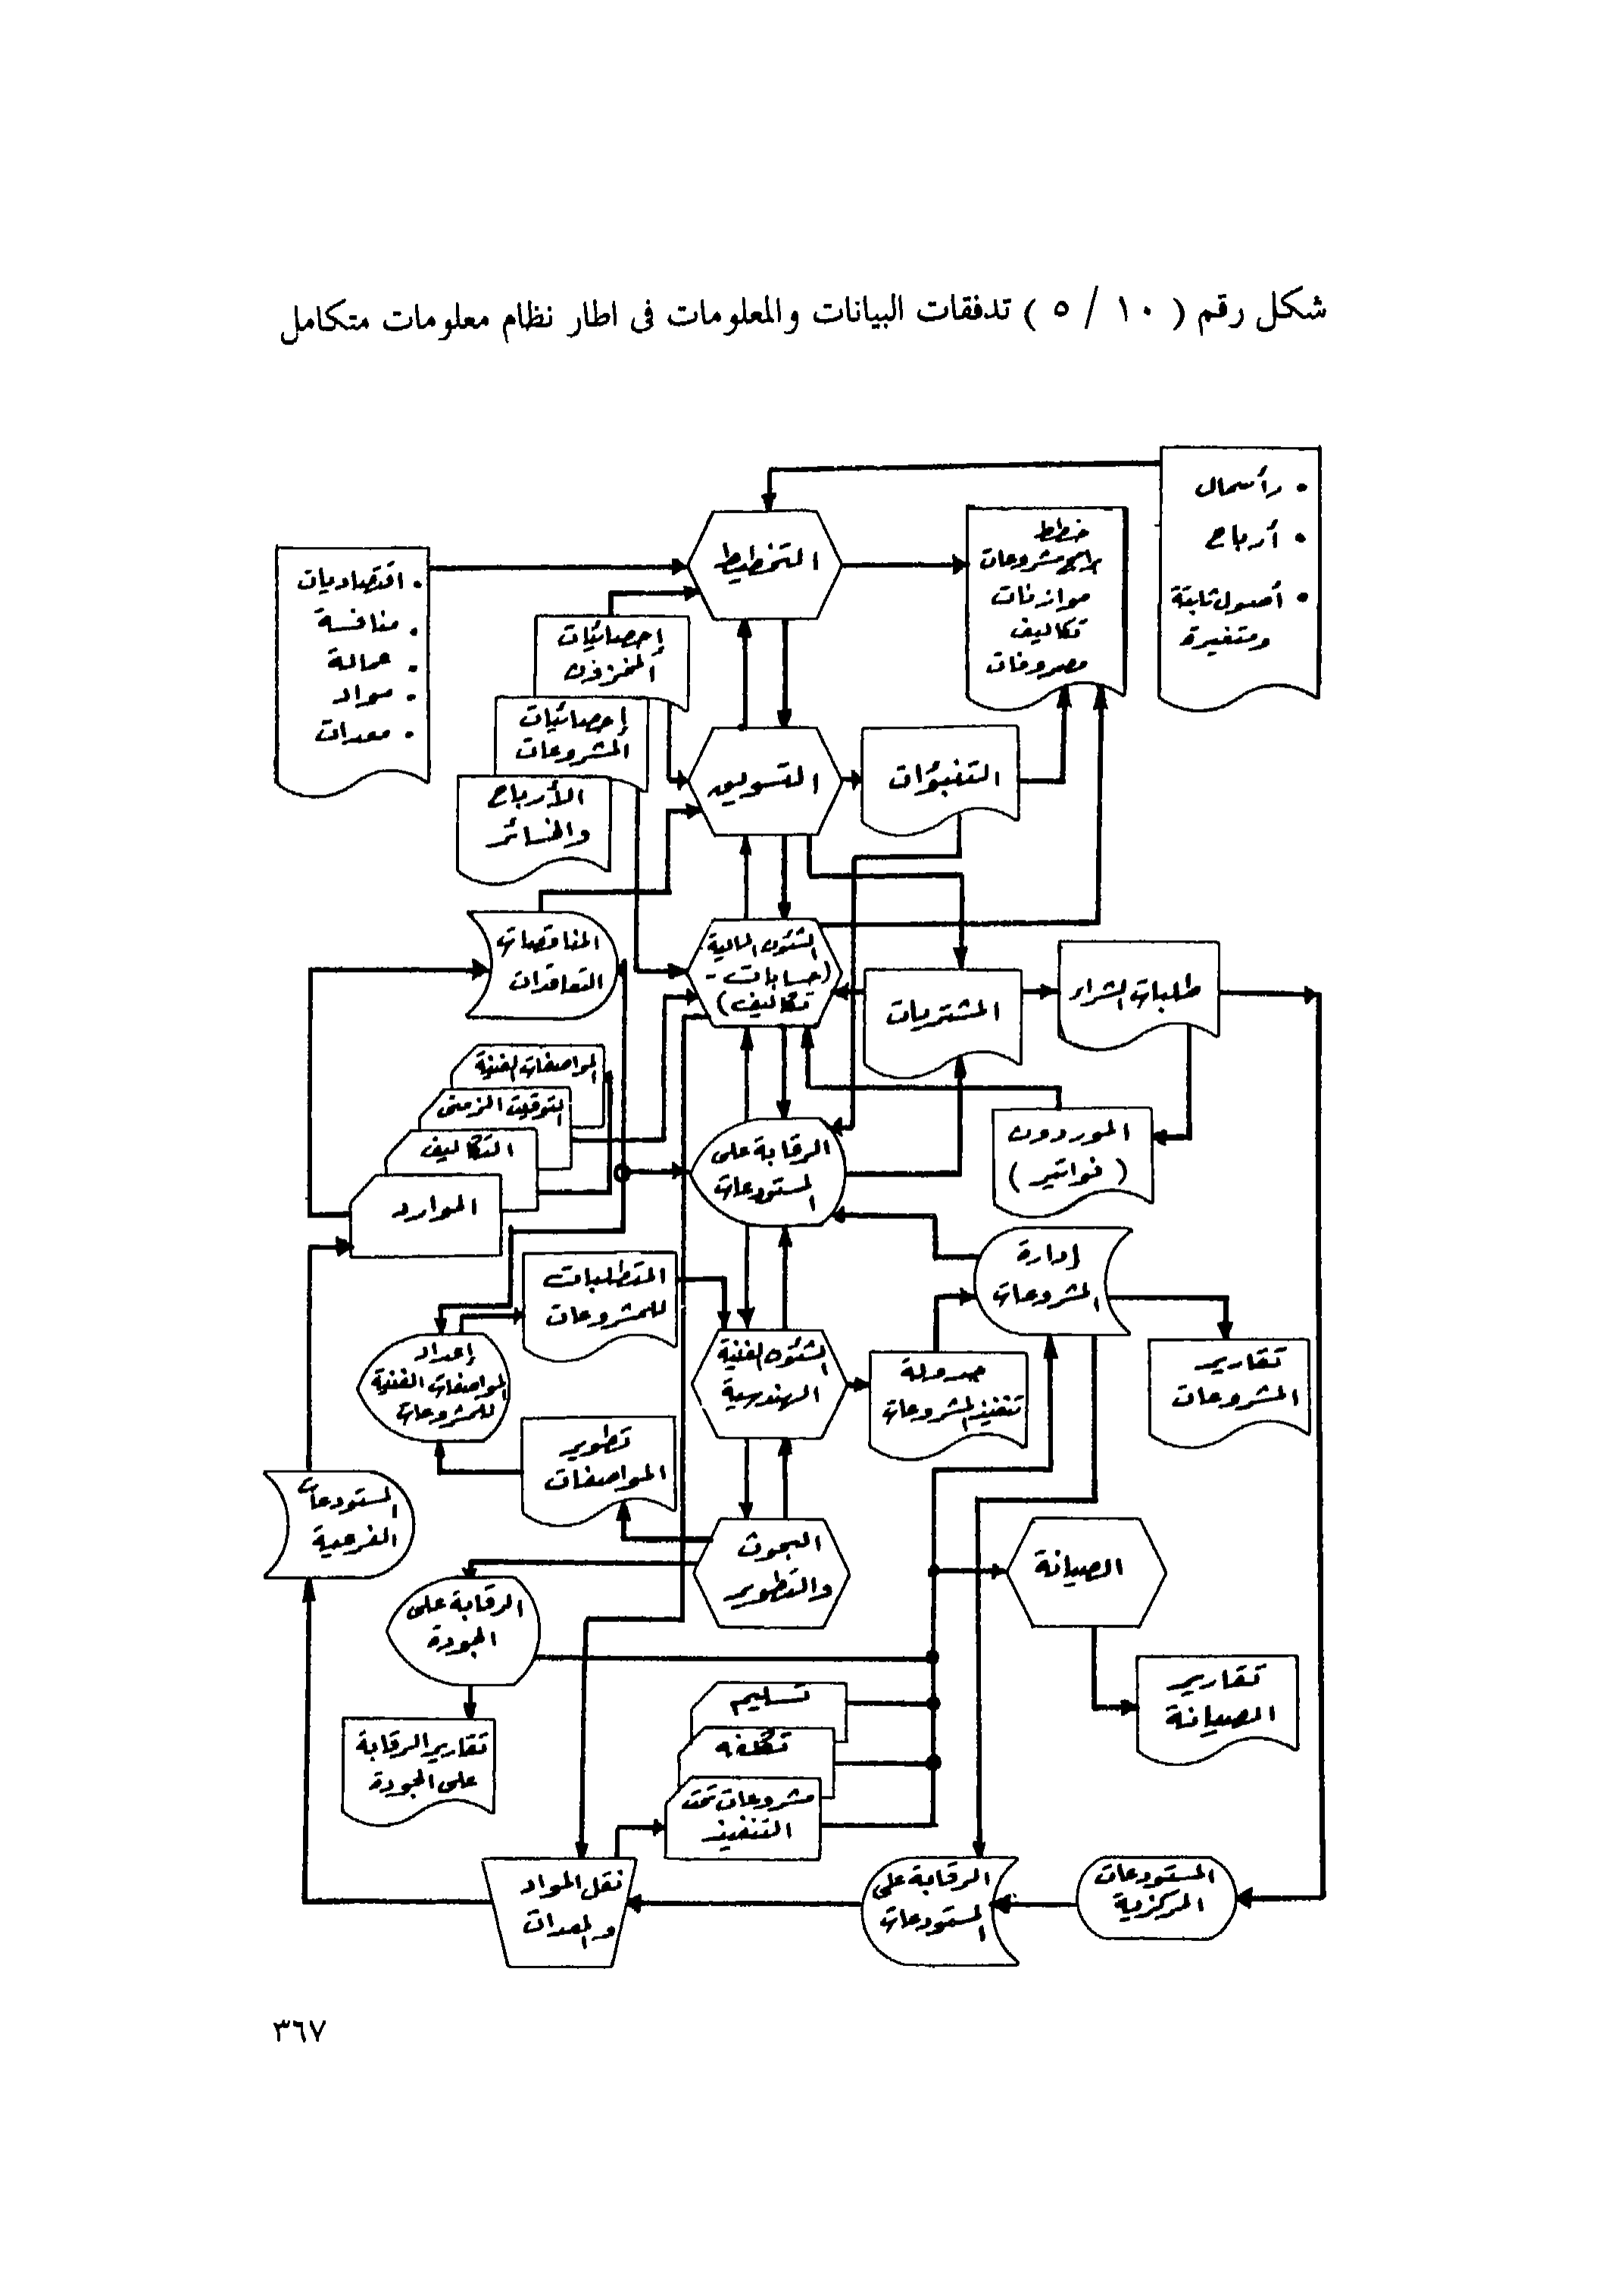 شكل رقم ( ١٠ / ٥ ) تدفقات البيانات والمعلومات فى اطار نظام معلومات متكامل
• رأسمال
• أرباح
• أصول ثابتة
ومتغيرة
خطط
برامج مشروعات
موازنات
تكاليف
مصروفات
التخطيط
• اقتصاديات
• منافسة
• عمالة
• مواد
• معدات
إحصائيات
المخزون
إحصائيات
المشروعات
الأرباح
والخسائر
التسويق
التنبؤات
المناقصات
التعاقدات
الشئون المالية
(حسابات -
تكاليف)
المشتريات
طلبات الشراء
الموردون
( فواتير )
المواصفات الفنية
التوقيت الزمنى
التكاليف
الموارد
الرقابة على
المستودعات
إدارة
المشروعات
المتطلبات
للمشروعات
إعداد
المواصفات الفنية
للمشروعات
الشئون الفنية
الهندسية
جدولة
تنفيذ المشروعات
تقارير
المشروعات
تطوير
المواصفات
المستودعات
الفرعية
البحوث
والتطوير
الصيانة
الرقابة على
الجودة
تقارير
الصيانة
تقارير الرقابة
على الجودة
تسليم
تكلفه
مشروعات تحت
التنفيذ
نقل المواد
والمعدات
الرقابة على
المستودعات
المستودعات
المركزية
٣٦٧